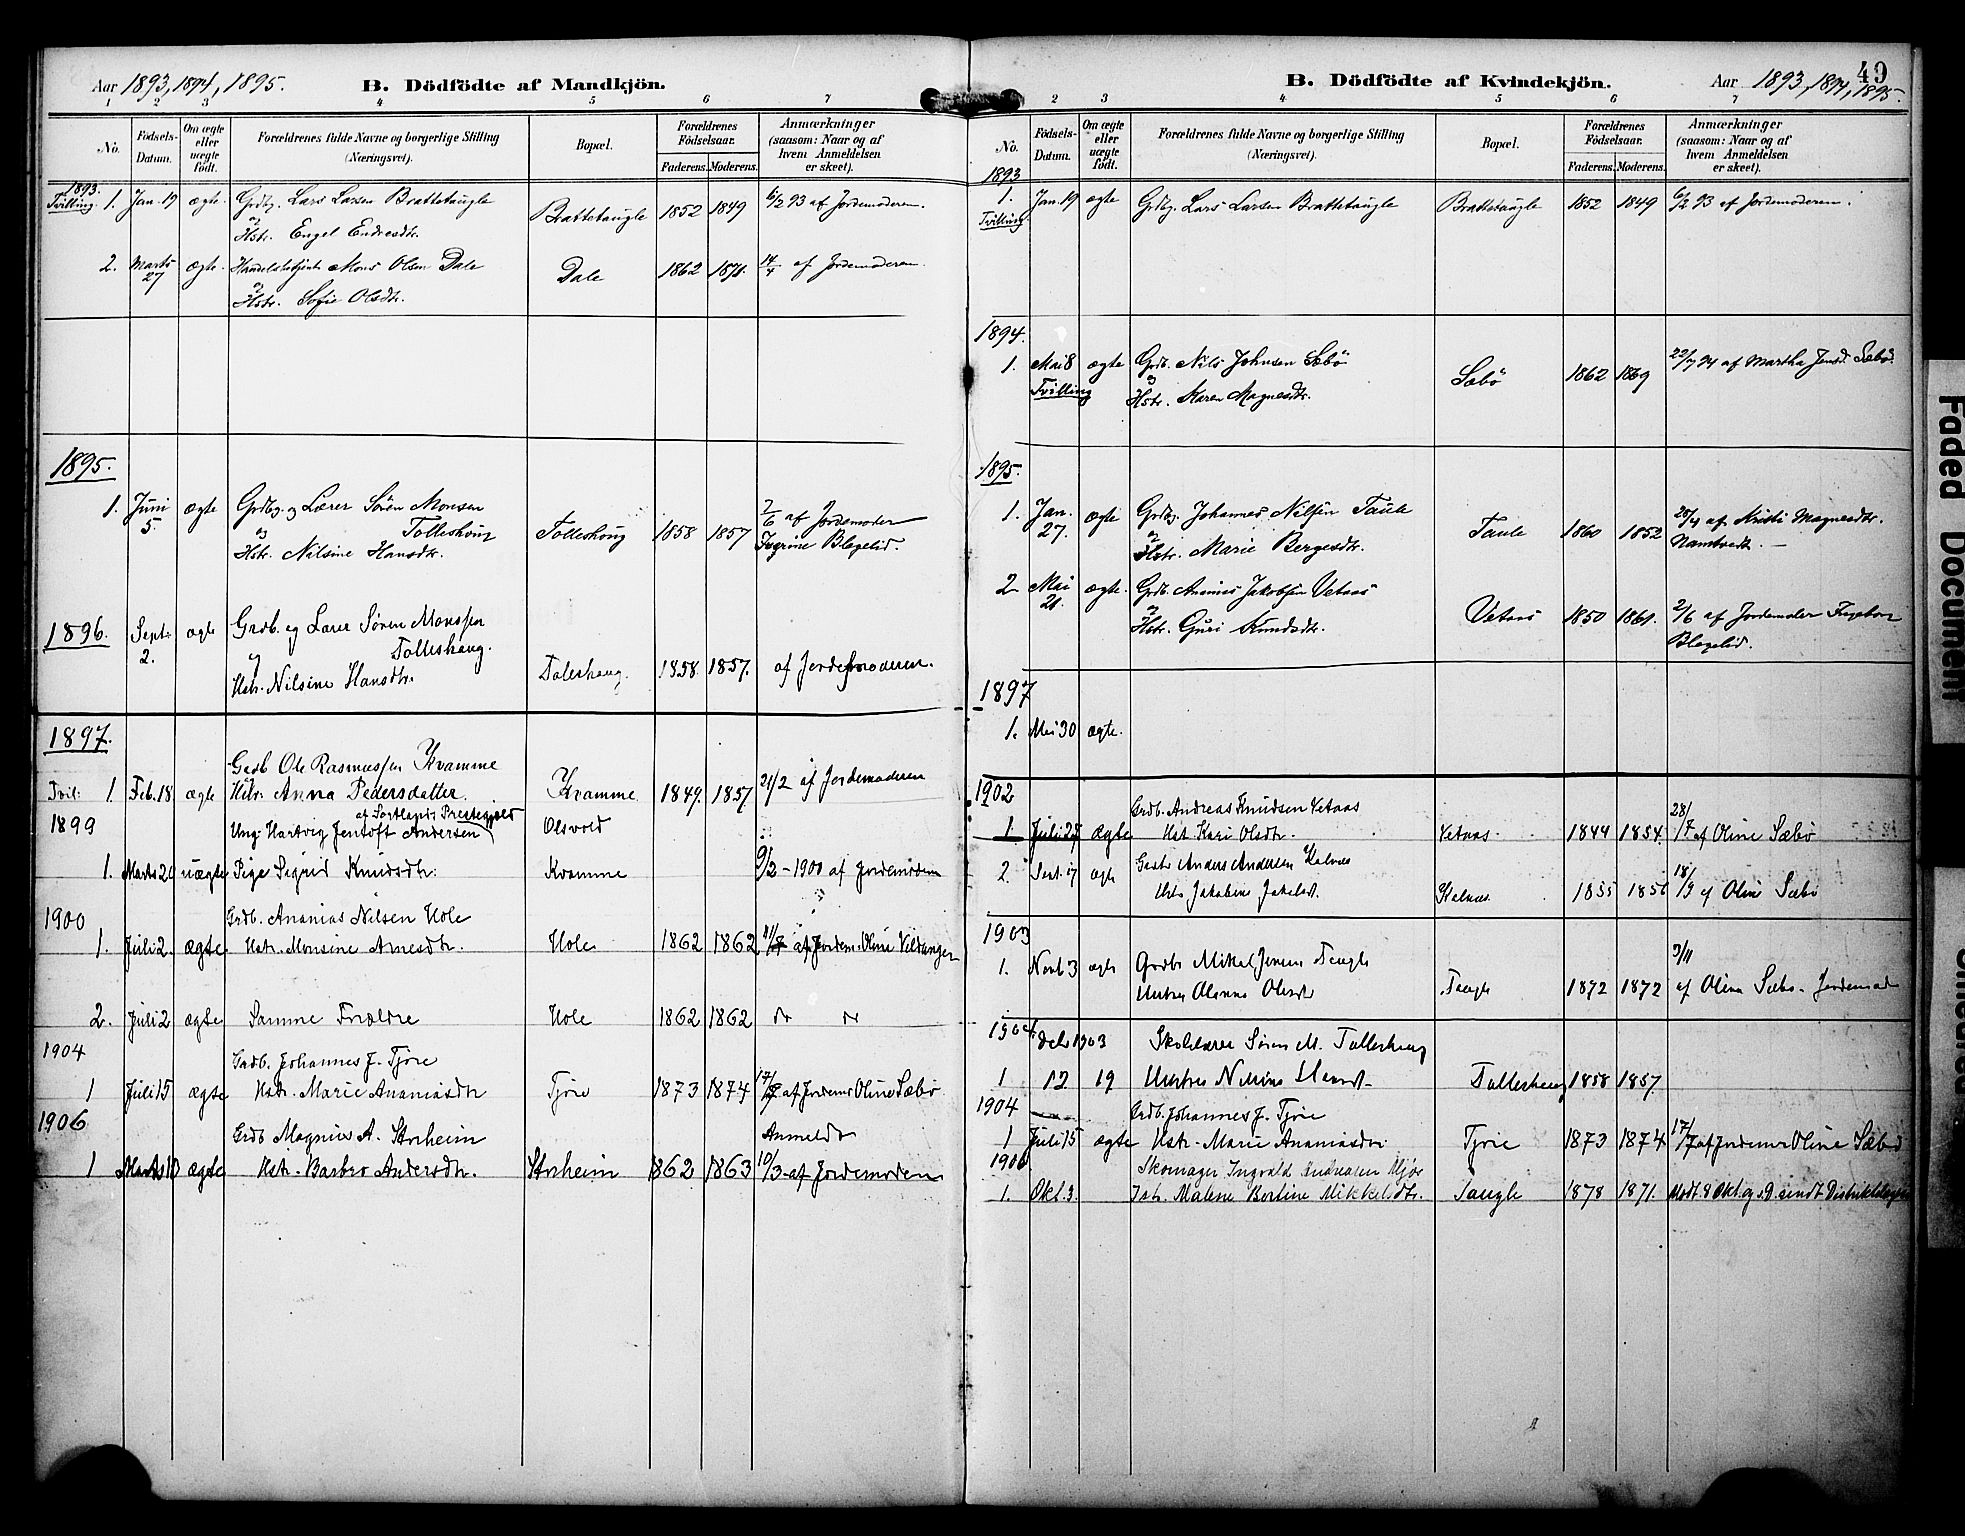 Aar 1893, 1894, 1895. B. Dödfödte af Mandkjön.
1 2 3 4 5 6 7
No. Födsels-Datum. Om ægte eller uægte födt. Forældrenes fulde Navne og borgerlige Stilling (Næringsvei). Bopæl. Forældrenes Födselsaar. Faderens. Moderens. Anmærkninger (saasom: Naar og af hvem Anmeldelsen er skeet).
1893.
Tvilling. 1. Jan. 19 ægte. Grdbg. Lars Larsen Brattetaugle Brattetaugle 1852 1849 6/2 93 af Jordemoderen.
og
Hstr. Engel Endresdtr.
2. Marts 27 ægte. Handelsbetjent Mons Olsen Dale Dale 1862 1871. 14/4 af Jordemoderen.
og
Hstr. Sofie Olsdtr.
1895.
1. Juni 5. ægte Grdbg. og Lærer Sören Monsen
Tolleshoug Tolleshoug 1858 1857 7/6 af Jordemoder
og
Hstr. Nilsine Hansdtr. Blegelid.
1896. Septr. 2. ægte Grdb. og Lærer Sören Monssen
Tolleshaug.
og
Hstr. Nilsine Hansdtr. Toleshaug. 1858 1857. af Jordemoderen.
1897.
Grdb. Ole Rasmussen Kvamme
Tvil: 1. Feb. 18 ægte Hstr. Anna Pedersdatter. Kvamme 1849. 1857 21/2 af Jordemoderen
af Sortlands Prestegjeld
1899 Ung. Hartvig Jentoft Andersen Olsvold
1. Marts 20 uægte Pige Sigrid Knudsdtr. Kvamme 9/2 - 1900 af Jordemoderen
1900 Grdb. Ananias Nilsen Hole
1. Juli 2. ægte Hstr. Monsine Arnesdtr. Hole 1862 1862 11/7 af Jordem. Oline Veldanger
2. Juli 2 ægte Samme Forældre Hole 1862 1862 do do
1904 Grdb. Johannes J. Tjore
1 Juli 15 ægte Hstr. Marie Ananiasdtr Tjore 1873 1874 17/7 af Jordemr Oline Sæbö
1906 Grdb Magnus A. Storheim Anmeldt
1 Marts 10 ægte Hstr. Barbro Andersdtr. Storheim 1862 1863 10/3 af Jordemoderen
49
B. Dödfödte af Kvindekjön. Aar 1893, 1894, 1895.
2 3 4 5 6 7
No. Födsels-Datum. Om ægte eller uægte födt. Forældrenes fulde Navne og borgerlige Stilling (Næringsvei). Bopæl. Forældrenes Födselsaar. Faderens. Moderens. Anmærkninger (saasom: Naar og af hvem Anmeldelsen er skeet).
1893
1. Tvilling Jan. 19 ægte Grdbg. Lars Larsen Brattetaugle Brattetaugle 1852 1849 6/2 93 af Jordemoderen.
1894.
1. Mai 8 Tvilling ægte Grdb. Nils Johnsen Sæbö Sæbö 1862 1869 22/7 94 af Martha Jensd. Sæbö.
og
Hstr. Karen Magnesdtr.
1895.
1. Jan. 27. ægte Grdbg. Johannes Nilsen Taule Taule 1860 1852 28/4 af Kristi Magnesdtr.
og
Hstr. Marie Bergesdtr. Namtvedt.
2 Mai 21. ægte. Grdb. Ananias Jakobsen Vetaas Vetaas 1850 1861. 2/6 af Jordemoder Ingeborg
og
Hstr. Guri Knudsdtr. Blegelid.
1897
1. Mai 30 ægte.
1902 Grdb. Andreas Knudsen Vetaas 28/
1 Juli 27 ægte Hst. Kari Olsdtr. Vetaas 1844 1854. /7 af Oline Sæbö
2. Sept. 17 ægte Anders Andersen Kalvas 18/
Hstr Jakobine Kalvas 1855 1856 /9 af Oline Sæbö
1903
1. Novb 3 ægte Grdbr Mikkel Jensen Taugle 3/11
Hustru Olsdtr Taugle 1872 1872 af Oline Sæbö. Jordemod
1904. Debr 1903 Skolelærer Sören M. Tolleshaug
1 12 19 Hustru Nilsine Hansdtr. Tolleshaug 1858 1857.
1904 Grdb. Johannes J. Tjore
1 Juli 15 ægte Hstr. Marie Ananiasdtr Tjore 1873 1874 17/7 af Jordemr Oline Sæbö
1906 Skomager Ingvald Andreasen Mjös
1. Okt. 3. Hstr. Malene Bertine Mikkelsdtr. Taugle 1878 1871. Modt. 8 Okt. og s. D. sendt Distriktslægen
Faded Document